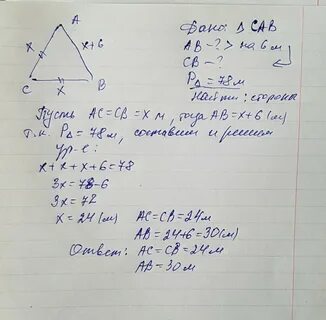 A
x
x+6
C
x
B
Дано: Δ CAB
AB - ? > на 6 м
CB - ?
PΔ = 78 м
Найти: стороны
Пусть AC=CB=x м, тогда AB=x+6 (м)
т.к. PΔ = 78 м, составим и решим
ур-е:
x+x+x+6=78
3x=78-6
3x=72
x=24 (м)
AC=CB=24м
AB=24+6=30(м)
Ответ: AC=CB=24м
AB=30м